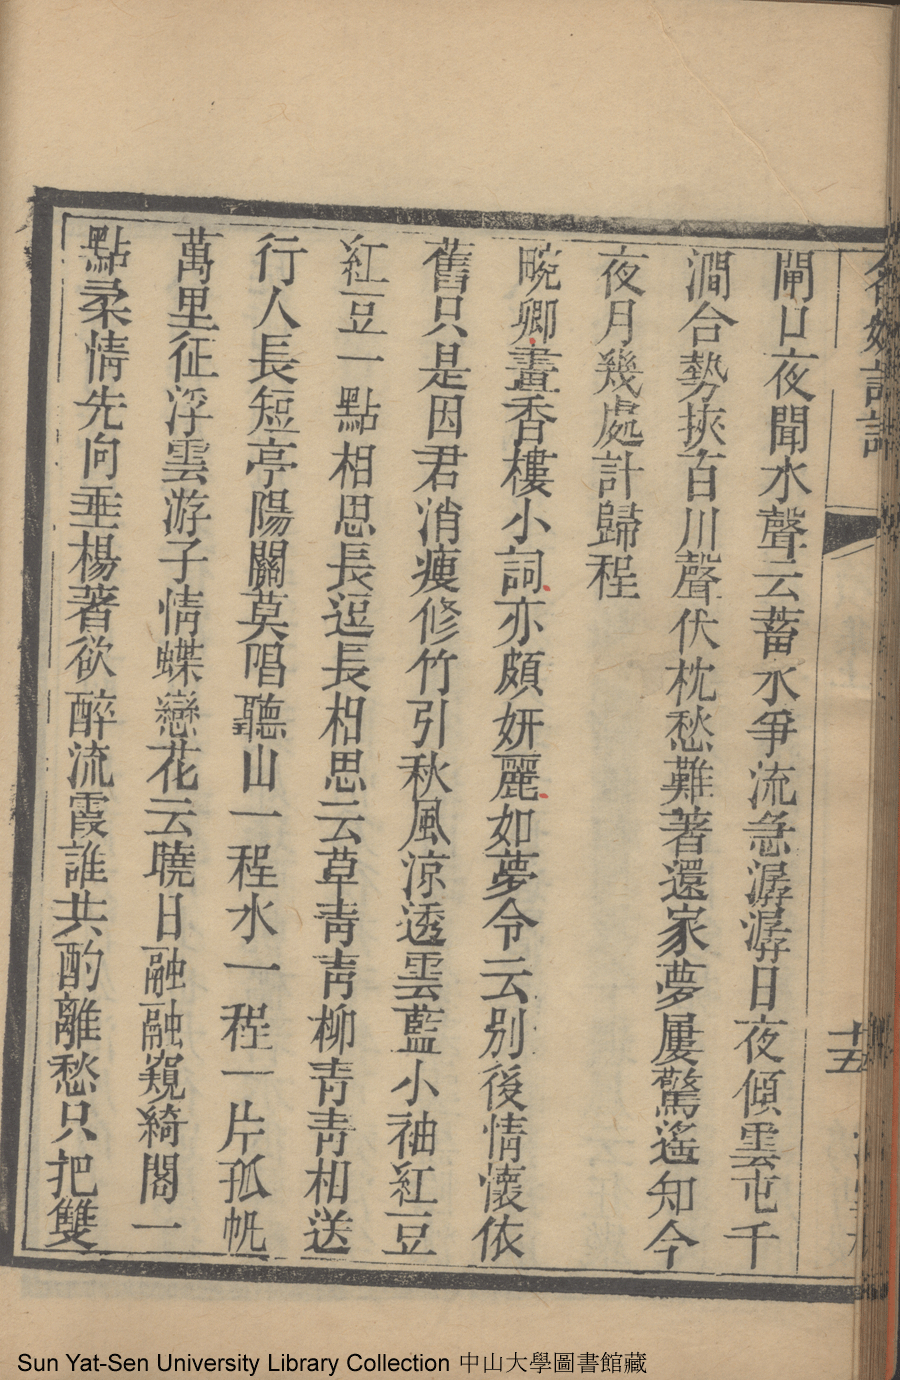 閘口夜聞水聲云蓄水爭流急潺潺日夜傾雲屯千
澗合勢挾百川聲伏枕愁難著還家夢屢驚遙知今
夜月幾處計歸程
畹卿畫香樓小詞亦頗妍麗如夢令云別後情懷依
舊只是因君消瘦修竹引秋風涼透雲藍小袖紅豆
紅豆一點相思長逗長相思云草青青柳青青相送
行人長短亭陽關莫唱聽山一程水一程一片孤帆
萬里征浮雲游子情蝶戀花云曉日融融窺綺閣一
點柔情先向垂楊著欲醉流霞誰共酌離愁只把雙
十五
Sun Yat-Sen University Library Collection 中山大學圖書館藏